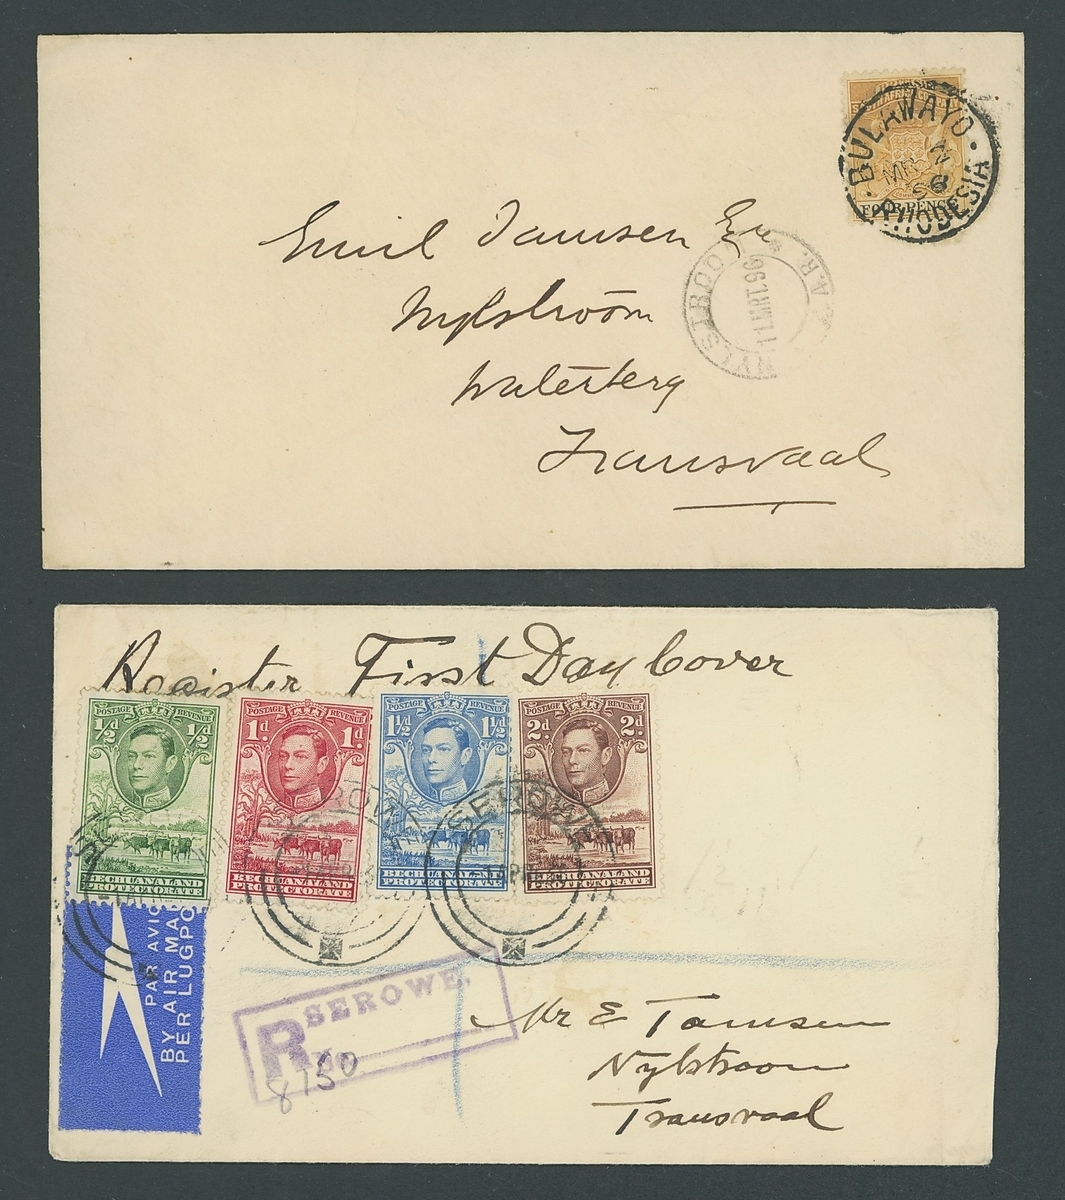 SOUTH AFRICA COMPANY
FOUR PENCE
BULAWAYO
MR 2
RHODESIA
Emil Tamsen Esq
Nylstroom
Waterberg
Transvaal
NYLSTROOM
11 MRT. 96
Register First Day Cover
POSTAGE REVENUE
½d ½d
BECHUANALAND
PROTECTORATE
POSTAGE REVENUE
1d 1d
BECHUANALAND
PROTECTORATE
POSTAGE REVENUE
1½d 1½d
BECHUANALAND
PROTECTORATE
POSTAGE REVENUE
2d. 2d.
BECHUANALAND
PROTECTORATE
SEROWE
PAR AVION
BY AIR MAIL
PER LUGPOS
R SEROWE.
No
8750
Mr E Tamsen
Nylstroom
Transvaal